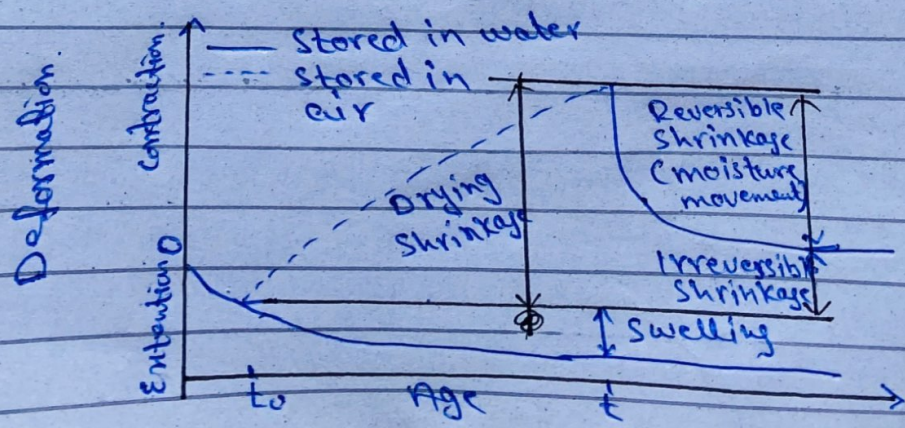 Deformation.
Contraction
Extention
0
Stored in water
Stored in
air
Drying
Shrinkage
Reversible
Shrinkage
(moisture
movement)
Irreversible
Shrinkage
Swelling
to
Age
t